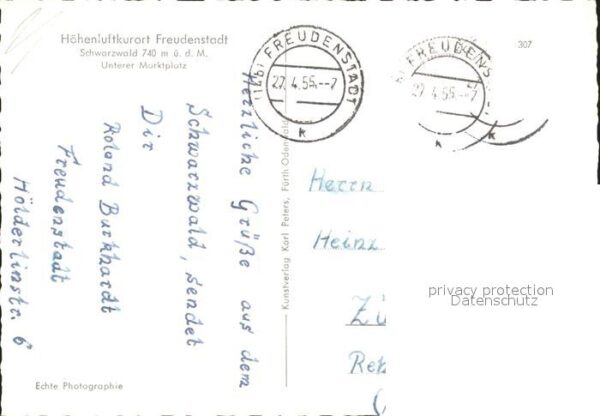 Höhenluftkurort Freudenstadt
Schwarzwald 740 m ü. d. M.
Unterer Marktplatz
Herzliche Grüße aus dem
Schwarzwald, sendet
Dir
Roland Burkhardt
Freudenstadt
Hölderlinstr. 6
Echte Photographie
Kunstverlag Karl Peters, Fürth Odenwald
FREUDENSTADT
27.4.55.--7
k
FREUDENS
27.4.55.--7
k
307
Herrn
Heinz
privacy protection
Datenschutz